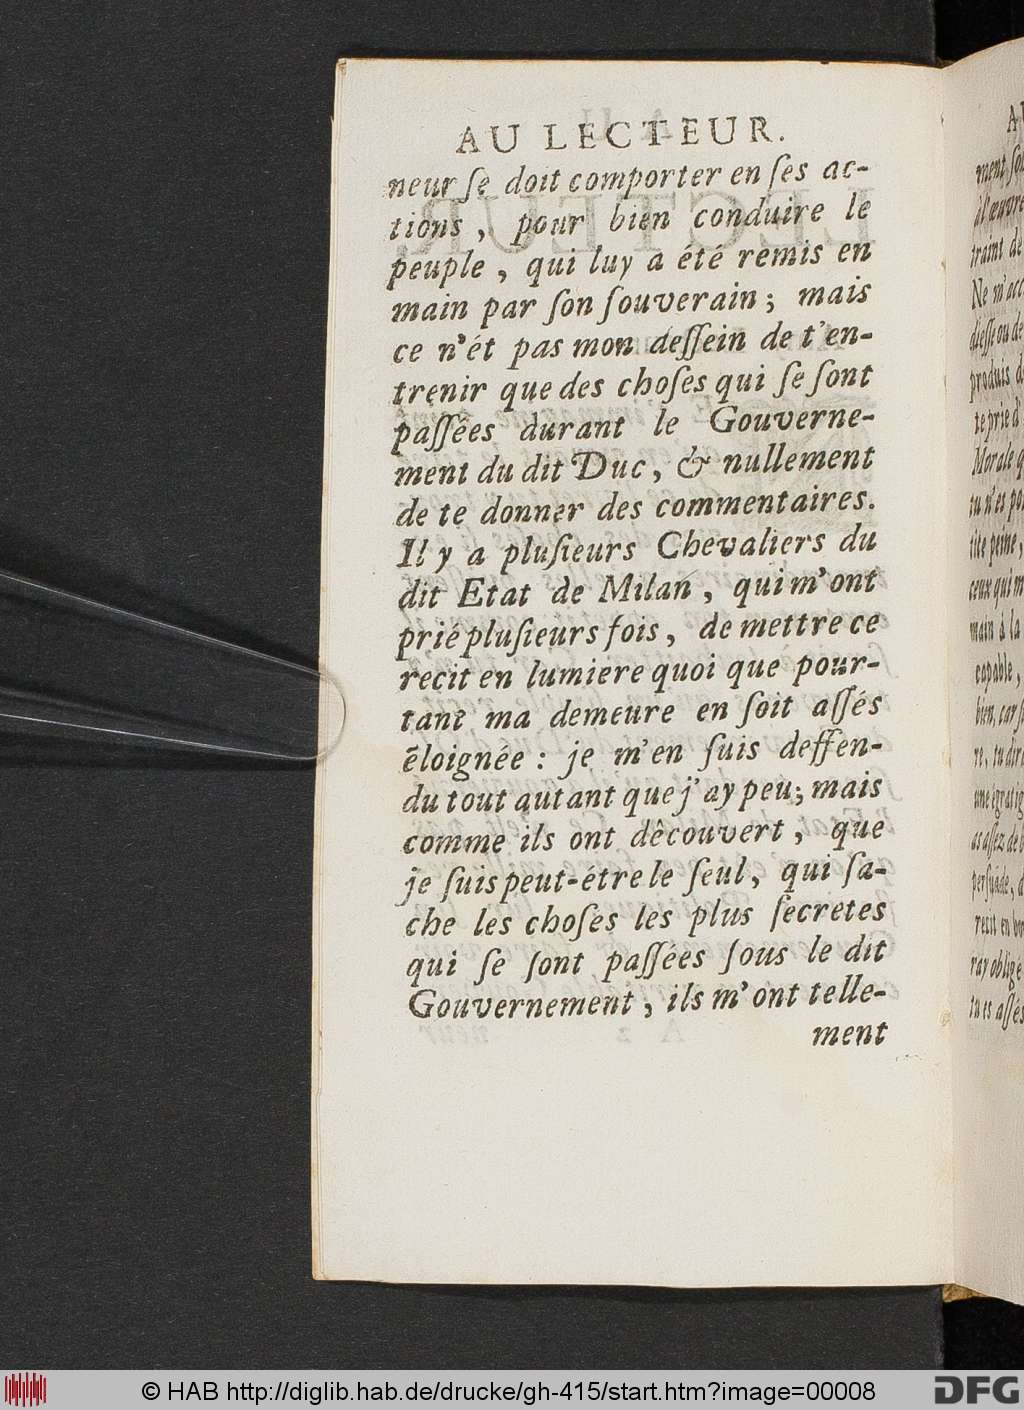 AU LECTEUR.
neur ſe doit comporter en ſes ac-
tions, pour bien conduire le
peuple, qui luy a été remis en
main par ſon ſouverain; mais
ce n'ét pas mon deſſein de t'en-
trenir que des choſes qui ſe ſont
paſſées durant le Gouverne-
ment du dit Duc, & nullement
de te donner des commentaires.
Il y a pluſieurs Chevaliers du
dit Etat de Milan, qui m'ont
prié pluſieurs fois, de mettre ce
recit en lumiere quoi que pour-
tant ma demeure en ſoit aſſés
éloignée: je m'en ſuis deffen-
du tout autant que j'ay peu; mais
comme ils ont dêcouvert, que
je ſuis peut-étre le ſeul, qui ſa-
che les choſes les plus ſecretes
qui ſe ſont paſſées ſous le dit
Gouvernement, ils m'ont telle-
ment
ment
à l'œuvre
traint de
produis
te prie d'
Morale
tu n'es
tite peine,
ceux qui m
main à la
capable,
bien, car
re, tu dira
une egratig
as aſſez de
perſuade,
recit en
ray obligé
tu es aſſés
© HAB http://diglib.hab.de/drucke/gh-415/start.htm?image=00008
DFG